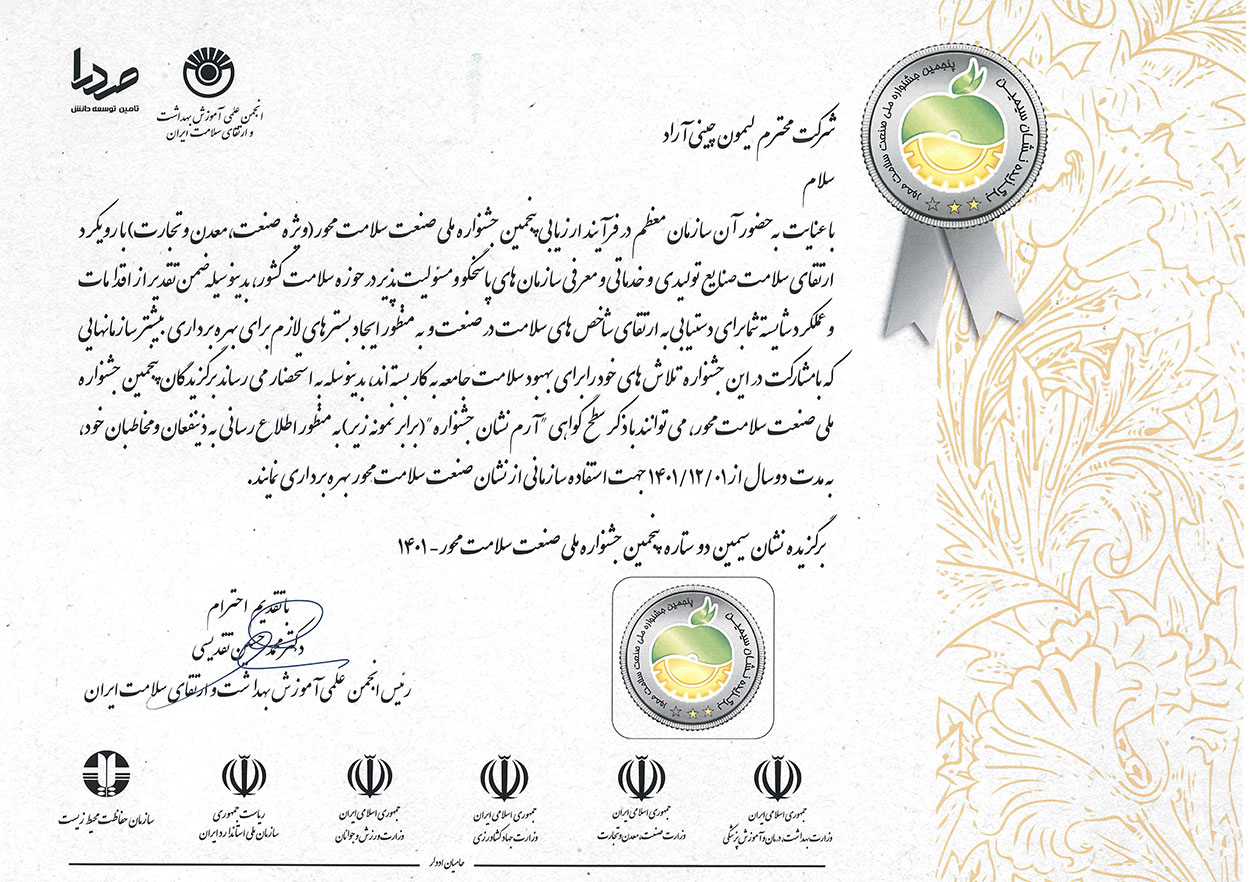 مدرا
تامین توسعه دانش
انجمن علمی آموزش بهداشت
و ارتقای سلامت ایران
پنجمین جشنواره ملی صنعت سلامت محور
برگزیده نشان سیمین
شرکت محترم لیمون چینی آراد
سلام
با عنایت به حضور آن سازمان معظم در فرآیند ارزیابی پنجمین جشنواره ملی صنعت سلامت محور (ویژه صنعت، معدن و تجارت) با رویکرد
ارتقای سلامت صنایع تولیدی و خدماتی و معرفی سازمان های پاسخگو و مسئولیت پذیر در حوزه سلامت کشور، بدینوسیله ضمن تقدیر از اقدامات
و عملکرد شایسته شما برای دستیابی به ارتقای شاخص های سلامت در صنعت و به منظور ایجاد بسترهای لازم برای بهره برداری بیشتر سازمانهایی
که با مشارکت در این جشنواره تلاش های خود را برای بهبود سلامت جامعه به کار بسته اند، بدینوسیله به استحضار می رساند برگزیدگان پنجمین جشنواره
ملی صنعت سلامت محور، می توانند با ذکر سطح گواهی "آرم نشان جشنواره" (برابر نمونه زیر) به منظور اطلاع رسانی به ذینفعان و مخاطبان خود،
به مدت دو سال از ۱۴۰۱/۱۲/۰۱ جهت استفاده سازمانی از نشان صنعت سلامت محور بهره برداری نمایند.
برگزیده نشان سیمین دو ستاره پنجمین جشنواره ملی صنعت سلامت محور - ۱۴۰۱
پنجمین جشنواره ملی صنعت سلامت محور
برگزیده نشان سیمین
با تقدیم احترام
دکتر محمدحسین تقدیسی
رئیس انجمن علمی آموزش بهداشت و ارتقای سلامت ایران
جمهوری اسلامی ایران
وزارت بهداشت، درمان و آموزش پزشکی
جمهوری اسلامی ایران
وزارت صنعت، معدن و تجارت
جمهوری اسلامی ایران
وزارت جهاد کشاورزی
جمهوری اسلامی ایران
وزارت ورزش و جوانان
ریاست جمهوری
سازمان ملی استاندارد ایران
سازمان حفاظت محیط زیست
حامیان ادوار